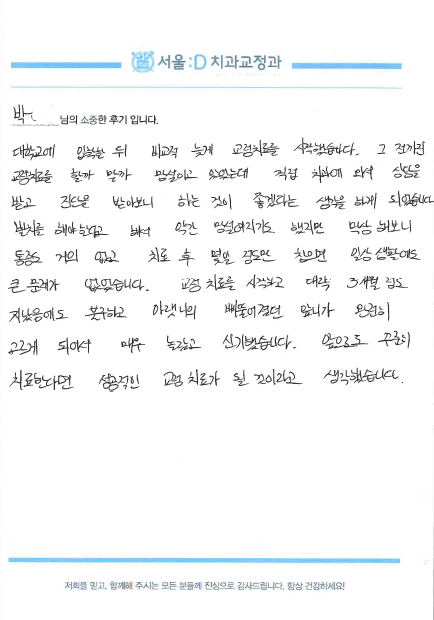 서울:D 치과교정과
박 님의 소중한 후기 입니다.
대학교에 입학한 뒤 비교적 늦게 교정치료를 시작했습니다. 그 전까지
교정치료를 할까 말까 망설이고 있었는데 직접 치과에 와서 상담을
받고 진단을 받아보니 하는 것이 좋겠다는 생각을 하게 되었습니다
발치를 해야한다고 해서 약간 망설여지기도 했지만 막상 해보니
통증도 거의 없고 치료 후 몇일 정도만 참으면 일상 생활에도
큰 문제가 없었습니다. 교정 치료를 시작하고 대략 3개월 정도
지났음에도 불구하고 아랫니의 삐뚤어졌던 앞니가 완전히
고르게 되어서 매우 놀라고 신기했습니다. 앞으로도 꾸준히
치료한다면 성공적인 교정 치료가 될 것이라고 생각했습니다.
저희를 믿고, 함께해 주시는 모든 분들께 진심으로 감사드립니다. 항상 건강하세요!